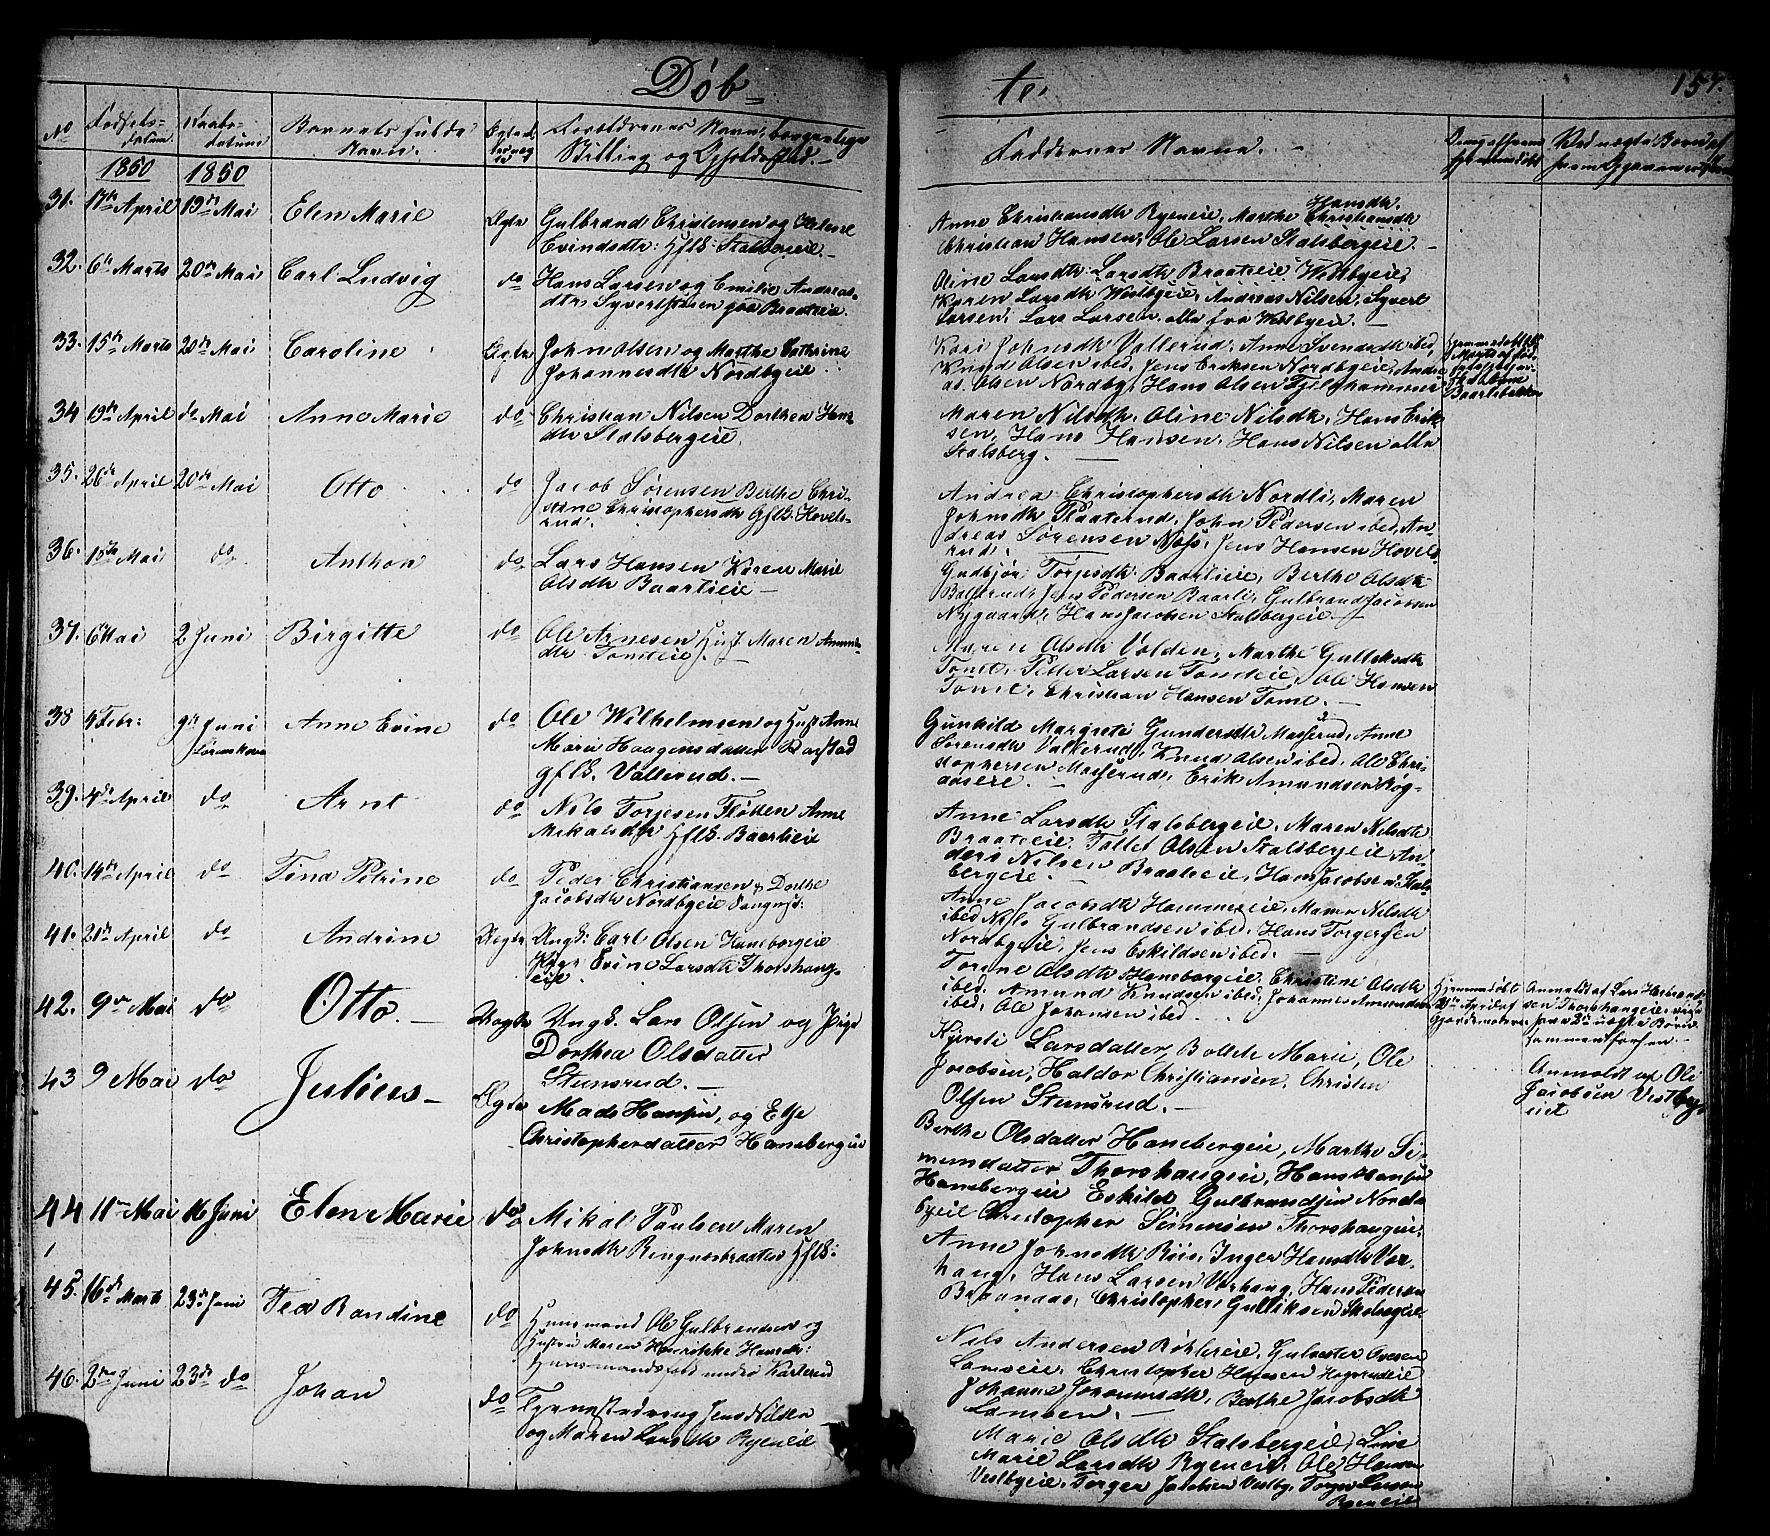 Døb-
te.
157.
No
Fødsels-
datum.
Daabs-
datum
Barnets fulde
Navn.
Ægte el.
uægte
Forældrenes Navn, borgerlige
Stilling og Opholdssted.
Faddernes Navne.
1850
1850
31. 17de April 19de Mai Elen Marie Ægte Gulbrand Christensen og
Evindsdtr: Hflk: Stalsbergeie.
Anne Christiansdtr Ryeneie, Marthe Hansdtr.
Christiansdtr
Christian Hansen, Ole Larsen Stalsbergeie.
32. 6te Marts 20de Mai Carl Ludvig do Hans Larsen og Emilie Andreas-
dtr. Syvertstuen paa Braateie.
Oline Larsdtr: Larsdtr Braateeie Westbyeie,
Karen Larsdtr Westbyeie, Andreas Nilsen, Syvert
Larsen, Lars Larsen, alle fra Westbyeie.
33. 15de Marts 20de Mai Caroline Ægte John Olsen og Marthe Cathrine
Johannesdtr Nordbyeie.
Kari Johnsdtr Vallerud, Anne Svendsdtr ibed,
Knud Olsen ibed, Jens Eriksen Nordbyeie, Andre-
as Olsen Nordby, Hans Olsen Fjeldhammer
34 19de April do Mai Anne Marie do Christian Nilsen Dorthea Hans-
dtr Stalsbergeie.
Maren Nilsdtr, Oline Nilsdtr, Hans Erik-
sen, Hans Hansen, Hans Nilsen alle
Stalsberg.
35. 26de April 20de Mai Otto do Jacob Sørensen Berthe Chri-
stine Christophersdtr Gflk: Hovels-
rud.
Andrea Christophersdtr Nordli, Maren
Johnsdtr Flaaterud, John Pedersen ibed, An-
dreas Sørensen Næss, Jens Hansen Hovels-
rud.
36. 15de Mai do Anthon do Lars Hansen Karen Marie
Olsdtr Baarlieie
Gudbjør Torjesdtr. Baarlieie, Berthe Olsdtr
Balterud, Jens Pedersen Baarli, Gulbrand Jacobsen
Nygaard, Hans Jacobsen Stalsbergeie.
37. 6 Mai 2 Juni Birgitte do Ole Arnesen Hust Maren Amund-
dtr Tomteie.
Maren Olsdtr Volden, Marthe Gulliksdtr
Tomt, Peder Larsen Tomteie, Ole Hansen
Tomt, Christian Hansen Tomt.
38 4 Febr: 9de Juni Anne Evine do Ole Wilhelmsen og Hust Anne
Lørenskoven
Marie Haagensdatter
gflk. Vallerud.
Gunhild Margrete Gundersdtr Masserud, Anne
Sørensdtr Vallerud, Knud Olsen ibed. Ole Chri-
stophersen Masserud, Erik Amundsen Røg-
aasere.
39. 4de April do Arnt do Nils Torjesen Fløtten Anne
Mikalsdtr Hflk. Baarlieie
Anne Larsdtr Stalsbergeie, Maren Nilsdtr
Braateeie, Tollef Olsen Stalsbergeie An-
ders Nilsen Braateeie, Hans Jacobsen Stals-
bergeie.
40. 14de April do Tina Petrine do Peder Christiansen & Dorthe
Jacobsdtr Nordbyeie
Anne Jacobsdtr Hammereie, Maren Nilsdtr
ibed Nils Gulbrandsen ibed, Hans Torgersen
Nordbyeie, Jens Eskildsen ibed.
41. 21de April do Andrine Uægte Ungk: Carl Olsen Haneborgeie
Pige Evine Larsdtr Thorshaug-
eie.
Torine Olsdtr Haneborgeie, Christine Olsdtr
ibed. Amund Knudsen ibed, Johannes Amundsen
ibed, Ole Johansen ibed.
Hjemmedøbt
Gjordemoderen
Anmeldt af Lars Herbrand-
sen Thorshaugeie,
42. 9de Mai do Otto. Uægte Ungk. Lars Olsen og Pige
Dorthea Olsdatter
Stensrud.
Kjersti Larsdatter, Bolette Marie, Ole
Jacobsen, Haldor Christiansen, Christen
Olsen Stensrud.
Anmeldt af Ole
Jacobsen Vestby-
eiet
43 9 Mai do Julius Ægte Mads Hansen, og Else
Christophersdatter Hanebergeie
Berthe Olsdatter Hanebergeie, Marthe Si-
mensdatter Thorshaugeie, Hans Hansen
Hanebergeie Eskild Gulbrandsen Nordb-
eie Christopher Simensen Thorshaugeie.
44 11te Mai 16 Juni Elen Marie do Mikal Paulsen Maren
Johnsdtr Ringnesbraaten Hflk:
Anne Johnsdtr Røis, Inger Hansdtr Vor-
haug, Hans Larsen Vorhaug, Hans Pedersen
Christopher Gulliksen
45. 16de Marts 23de Juni Tea Randine do Huusmand Ole Gulbrandsen og
Hustru Maren Henrikke Hansdtr:
Huusmandsfolk under Karlsrud
Nils Andersen Røhlieie, Gulvester Ovesen
Lamseie, Christopher Hansen Hogsrudeie
Johanne Johannesdtr, Berthe Jacobsdtr
Lamseen.
46. 2den Juni 23de do Johan do Tjenestedreng Jens Nilsen
og Maren Larsdtr Ryeneie
Marie Olsdtr Stalsbergeie, Line
Marie Larsdtr Ryeneie, Ole Hansen
Vestbyeie, Torger Jacobsen Vestby, Larsen
Ryeneie